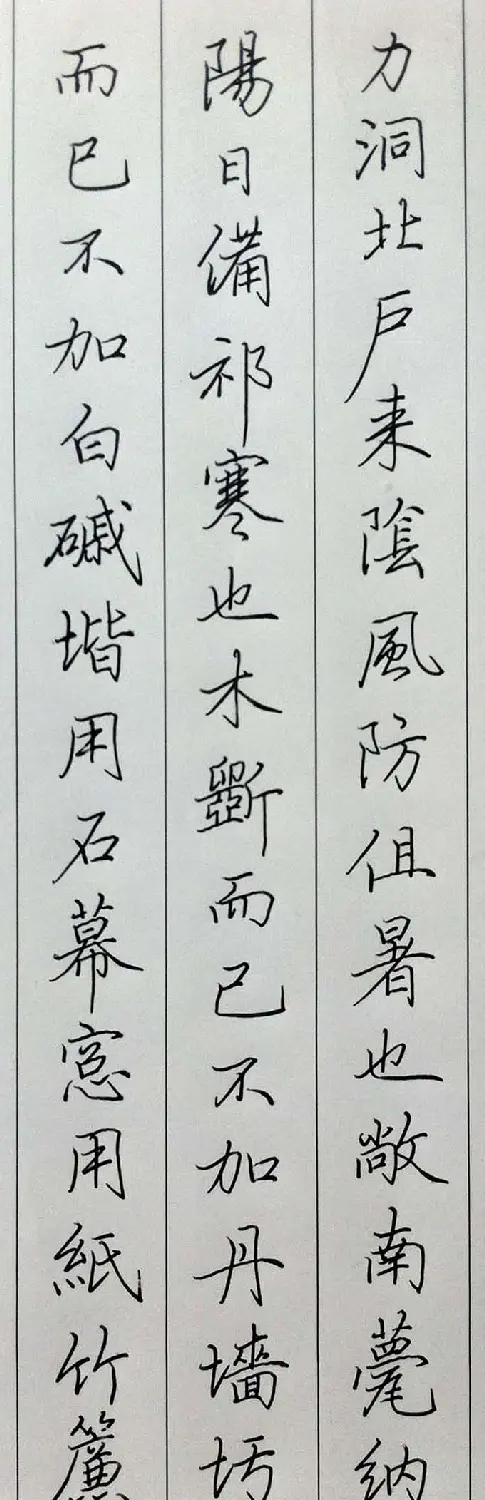 力洞北戶来陰風防徂暑也敞南甍纳
陽日備祁寒也木斵而已不加丹墻圬
而已不加白磩堦用石幕窓用紙竹簾